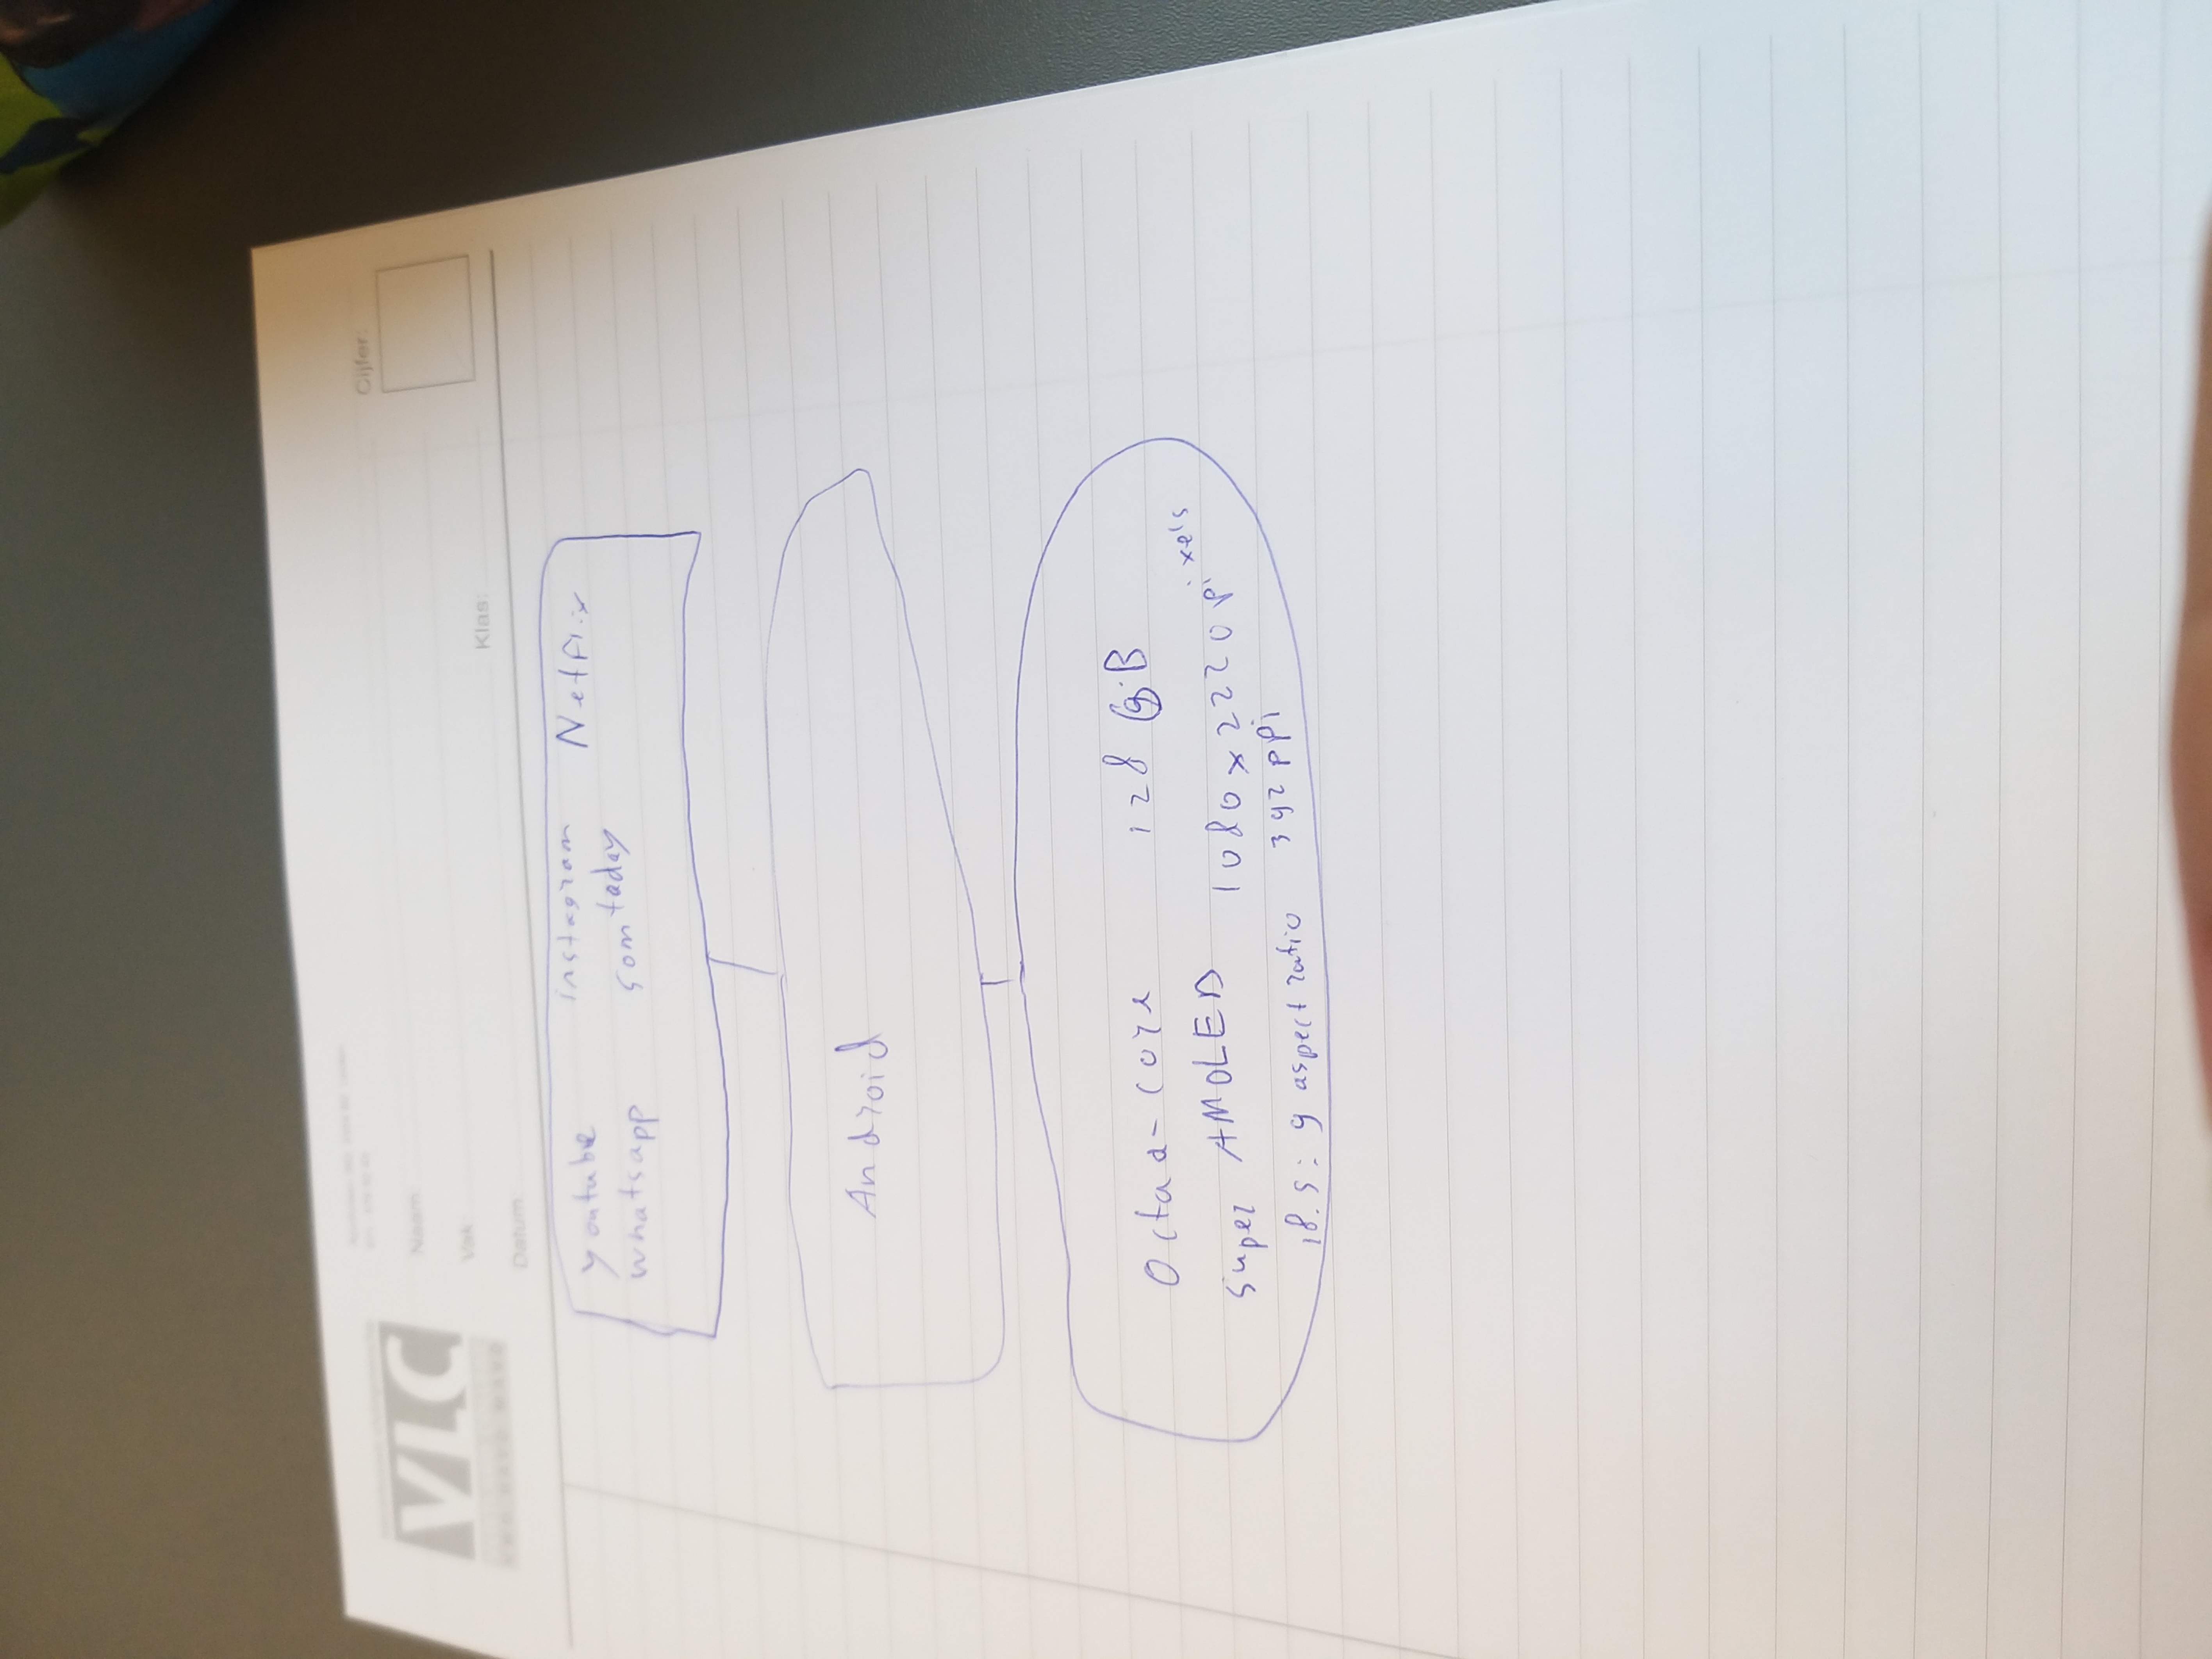 VLC
Naam:
Vak:
Datum:
Klas:
Cijfer:
youtube instagram Netflix
whatsapp somtoday
Android
Octaa-core 128 GB
super AMOLED 1080x2220 pixels
18.5:9 aspect ratio 392 ppi